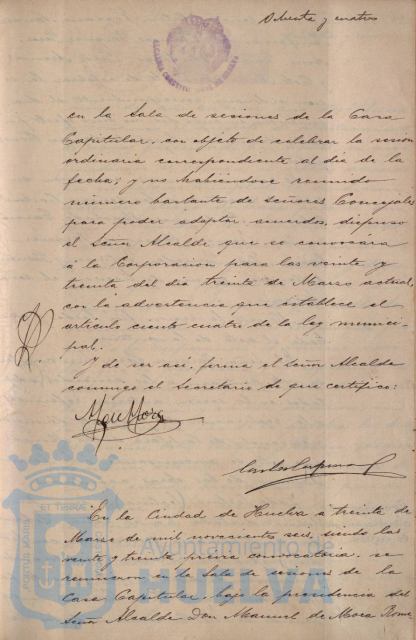 Ochenta y cuatro
en la Sala de sesiones de la Casa
Capitular, con objeto de celebrar la sesion
ordinaria correspondiente al dia de la
fecha; y no habiendose reunido
número bastante de señores Concejales
para poder adoptar acuerdos, dispuso
el Señor Alcalde que se convocára
á la Corporacion para las veinte y
treinta del dia treinta de Marzo actual,
con la advertencia que establece el
artículo ciento cuatro de la ley munici-
pal.
Y de ser así, firma el Señor Alcalde
conmigo el Secretario de que certifico:
M. de Mora
En la Ciudad de Huelva á treinta de
Marzo de mil novecientos seis, siendo las
veinte y treinta previa convocatoria, se
reunieron en la Sala de sesiones de la
Casa Capitular, bajo la presidencia del
Señor Alcalde Don Manuel de Mora Rome
Ayuntamiento de
HUELVA